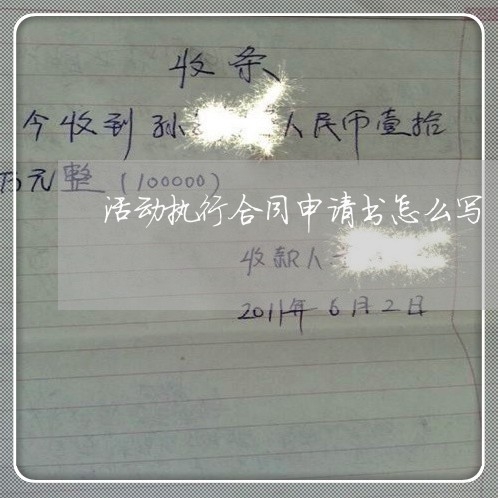 收条
今收到孙 人民币壹拾
万元整(100000)
活动执行合同申请书怎么写
收款人
2011年6月2日